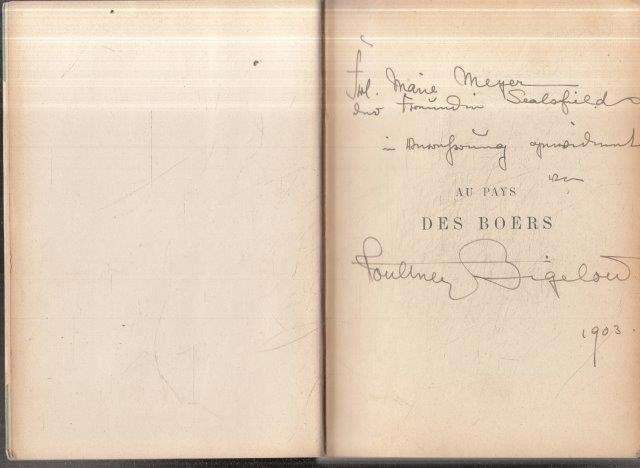 Frl. Marie Meyer
der Freundin Sealsfield
in Verehrung gewidmet
von
AU PAYS
DES BOËRS
Poultney Bigelow
1903.